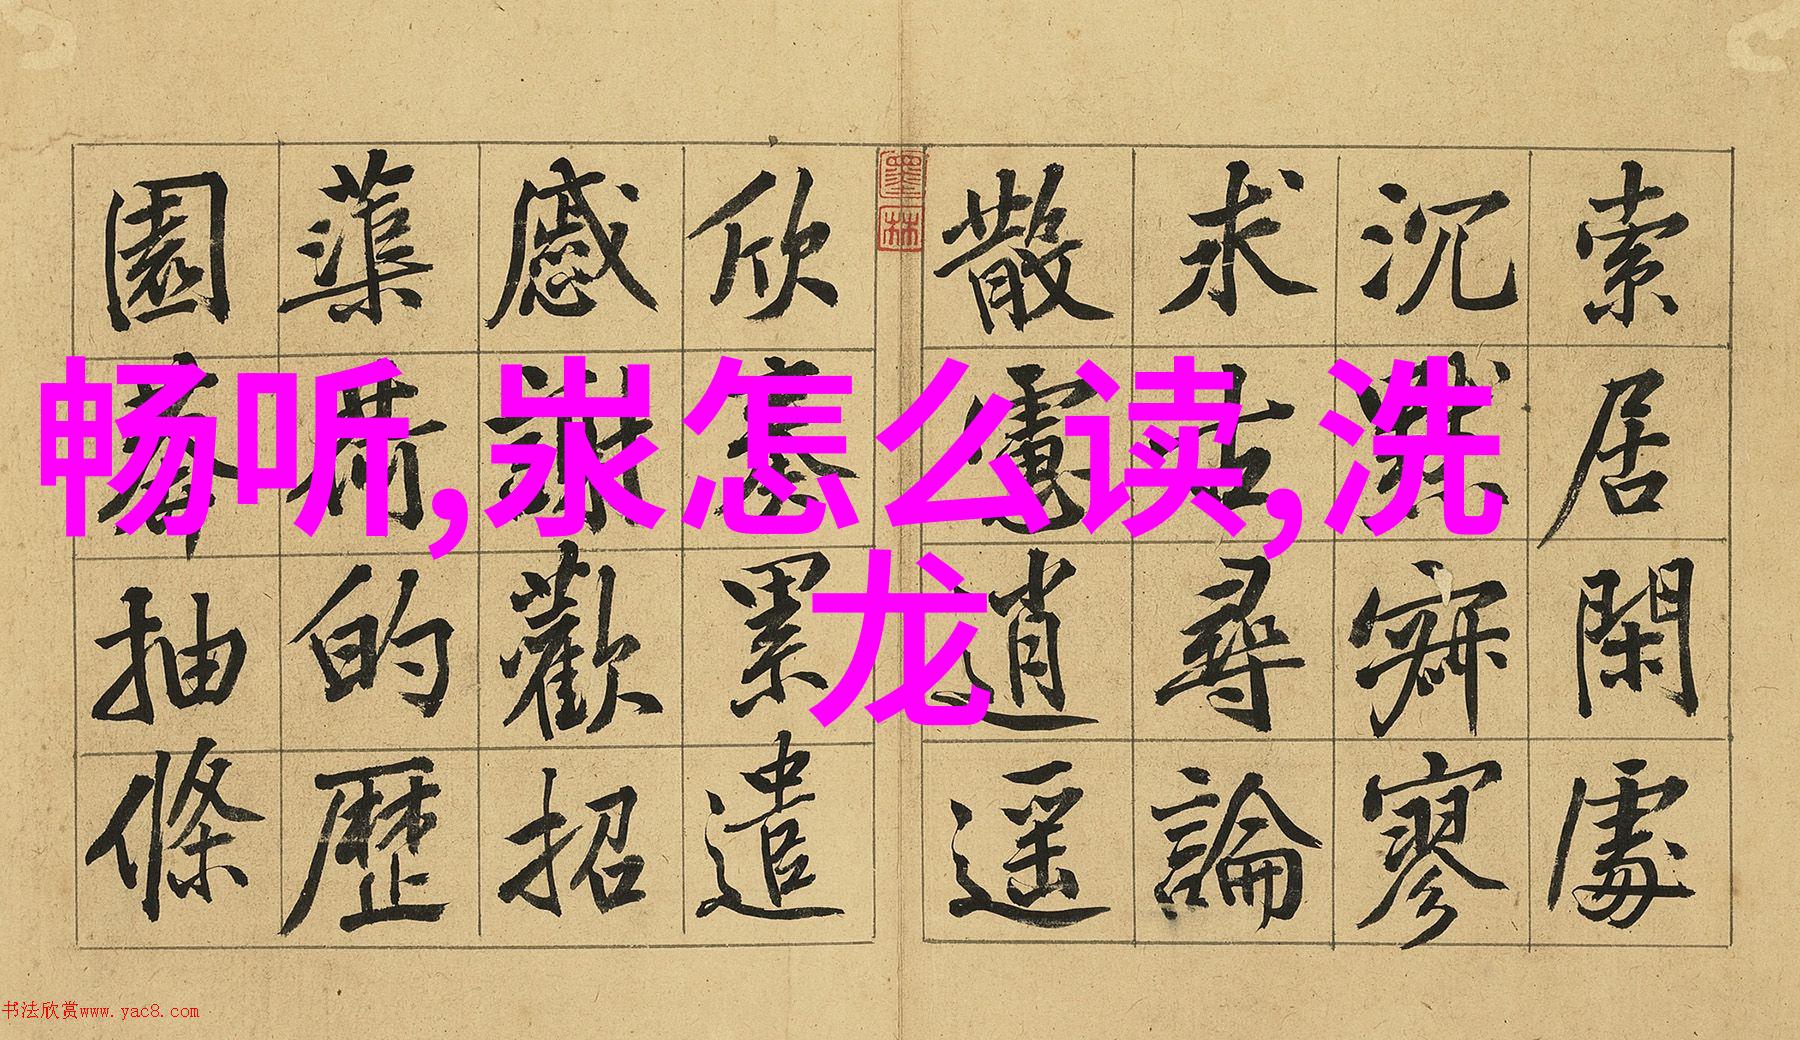 畅听,汖怎么读,洗
龙
索居閑處
沉默寂寥
求古尋論
散慮逍遥
欣奏累遣
慼謝歡招
蕖荷的歷
園莽抽條
墨林
书法欣赏www.yac8.com